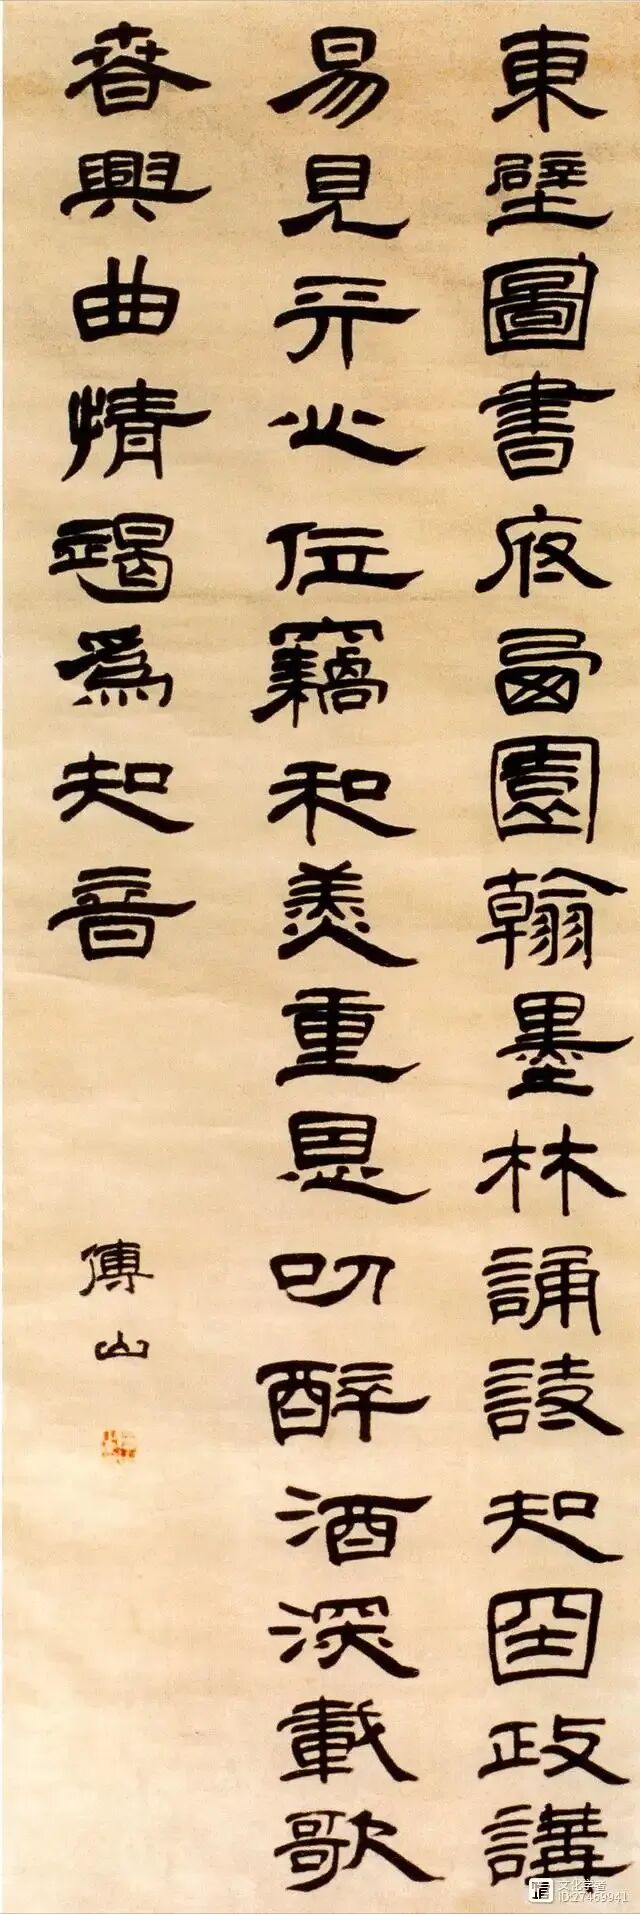 東壁圖書府西園翰墨林誦詩知国政講
易見天心位竊和羹重恩叨醉酒深載歌
春興曲情竭爲知音
傅山
文化学者
ID:27469941